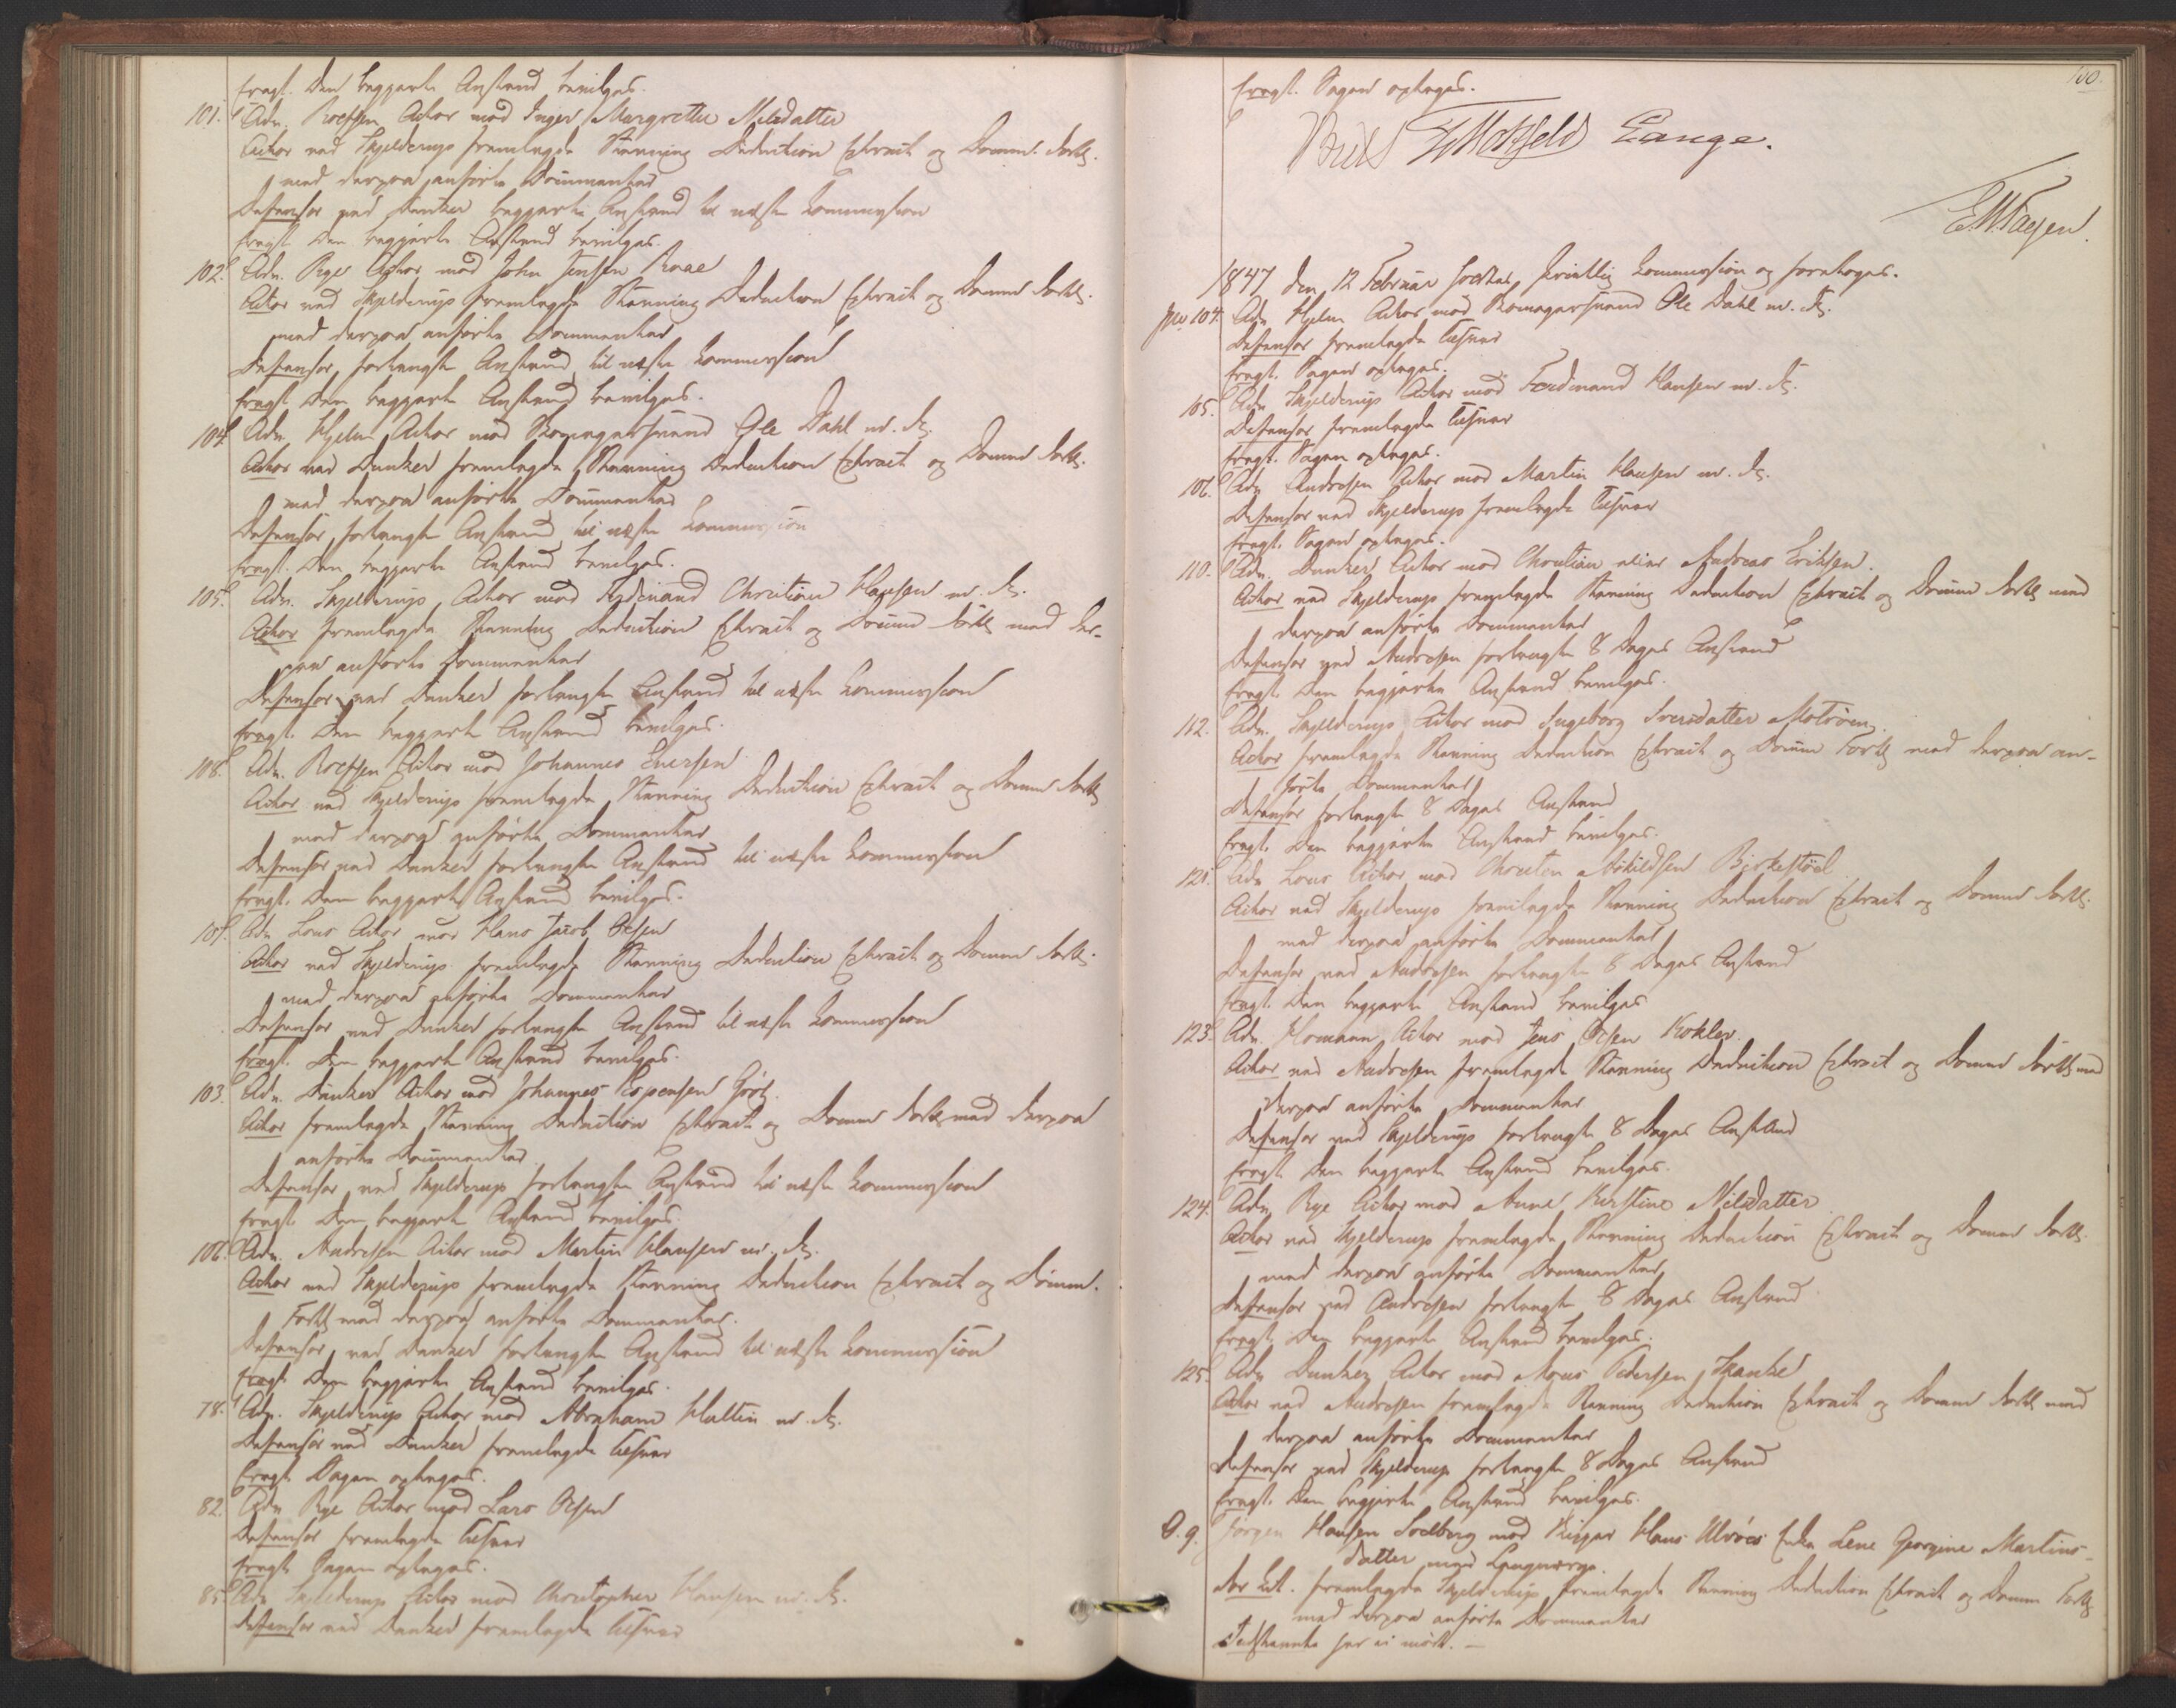 fragt. Den begjærte Anstand bevilges.
101. Adv. Rolfsen Actor mod Inger Margrethe Nilsdatter
Actor ved Skjelderup fremlagde Stevning Deduction Extract og Docum. Fortg.
med derpaa anførte Documenter
Defensor ved Dunker begjærte Anstand til næste Commission
fragt. Den begjærte Anstand bevilges.
102. Adv. Rye Actor mod John Jensen Roae
Actor ved Skjelderup fremlagde Stevning Deduction Extract og Docum Fortg.
med derpaa anførte Documenter
Defensor forlangte Anstand til næste Commission
fragt. Den begjærte Anstand bevilges.
104. Adv. Hjelm Actor mod Ole Dahl m. fl.
Actor ved Dunker fremlagde Stevning Deduction Extract og Docum Fortg.
med derpaa anførte Documenter
Defensor forlangte Anstand til næste Commission
fragt. Den begjærte Anstand bevilges.
105. Adv. Skjelderup Actor mod Ferdinand Christian Hansen m. fl.
Actor fremlagde Stevning Deduction Extract og Docum Fortg med der-
paa anførte Documenter
Defensor ved Dunker forlangte Anstand til næste Commission
fragt. Den begjærte Anstand bevilges.
108. Adv. Rolfsen Actor mod Johannes Iversen
Actor ved Skjelderup fremlagde Stevning Deduction Extract og Docum Fortg
med derpaa anførte Documenter
Defensor ved Dunker forlangte Anstand til næste Commission
fragt. Den begjærte Anstand bevilges.
109. Adv Lous Actor mod Hans Jacob Olsen
Actor ved Skjelderup fremlagde Stevning Deduction Extract og Docum Fortg.
med derpaa anførte Documenter
Defensor ved Dunker forlangte Anstand til næste Commission
fragt. Den begjærte Anstand bevilges.
103. Adv. Dunker Actor mod Johannes Espensen
Actor fremlagde Stevning Deduction Extract og Docum Fortg med derpaa
anførte Documenter
Defensor ved Skjelderup forlangte Anstand til næste Commission
fragt. Den begjærte Anstand bevilges.
106. Adv. Andresen Actor mod Martin Hansen m. fl.
Actor ved Skjelderup fremlagde Stevning Deduction Extract og Docum.
Fortg med derpaa anførte Documenter.
Defensor ved Dunker forlangte Anstand til næste Commission
fragt. Den begjærte Anstand bevilges.
78. Adv. Skjelderup Actor mod Abraham Hultin m. fl.
Defensor ved Dunker fremlagde Tilsvar
fragt. Sagen optages.
82. Adv Rye Actor mod Lars Olsen
Defensor fremlagde Tilsvar
fragt. Sagen optages.
85. Adv Skjelderup Actor mod Christopher Hansen m. fl.
Defensor ved Dunker fremlagde Tilsvar
100.
fragt. Sagen optages.
Motzfeldt Lange.
1847 den 12 Februar holdtes Commission og foretoges.
No 104. Adv Hjelm Actor mod Ole Dahl m. fl.
Defensor fremlagde Tilsvar
fragt. Sagen optages.
105. Adv Skjelderup Actor mod Ferdinand Hansen m. fl.
Defensor fremlagde Tilsvar
fragt. Sagen optages.
106. Adv Andresen Actor mod Martin Hansen m. fl.
Defensor ved Skjelderup fremlagde Tilsvar
fragt. Sagen optages.
110. Adv. Dunker Actor mod Christian eller Andreas Eriksen.
Actor ved Skjelderup fremlagde Stevning Deduction Extract og Docum Fortg med
derpaa anførte Documenter
Defensor ved Andresen forlangte 8 Dages Anstand
fragt. Den begjærte Anstand bevilges.
112. Adv. Skjelderup Actor mod Ingeborg Iversdatter
Actor fremlagde Stevning Deduction Extract og Docum Fortg med derpaa an-
førte Documenter
Defensor forlangte 8 Dages Anstand
fragt. Den begjærte Anstand bevilges.
121. Adv Lous Actor mod Christen Birkestöel
Actor ved Skjelderup fremlagde Stevning Deduction Extract og Docum Fortg.
med derpaa anførte Documenter
Defensor ved Andresen forlangte 8 Dages Anstand
fragt. Den begjærte Anstand bevilges
123. Adv. Homann Actor mod Jens Olsen Kokler
Actor ved Andresen fremlagde Stevning Deduction Extract og Docum Fortg med
derpaa anførte Documenter
Defensor ved Skjelderup forlangte 8 Dages Anstand
fragt. Den begjærte Anstand bevilges.
124. Adv Rye Actor mod Anne Kirstine Nilsdatter
Actor ved Skjelderup fremlagde Stevning Deduction Extract og Docum Fortg.
med derpaa anførte Documenter
Defensor ved Andresen forlangte 8 Dages Anstand
fragt. Den begjærte Anstand bevilges.
125. Adv Dunker Actor mod Mons Pedersen Skanke
Actor ved Andresen fremlagde Stevning Deduction Extract og Docum Fortg med
derpaa anførte Documenter
Defensor ved Skjelderup forlangte 8 Dages Anstand
fragt. Den begjærte Anstand bevilges.
O. 9. Jørgen Hansen Soelberg mod Hans Enke Lene Georgine Martins-
datter med Laugværge.
fremlagde Skjelderup fremlagde Stevning Deduction Extract og Docum Fortg
med derpaa anførte Documenter
Indstevnte har ei mødt. —